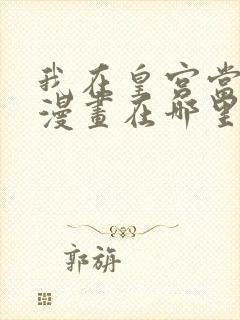 我在皇宫当
漫画在哪里
郭旃